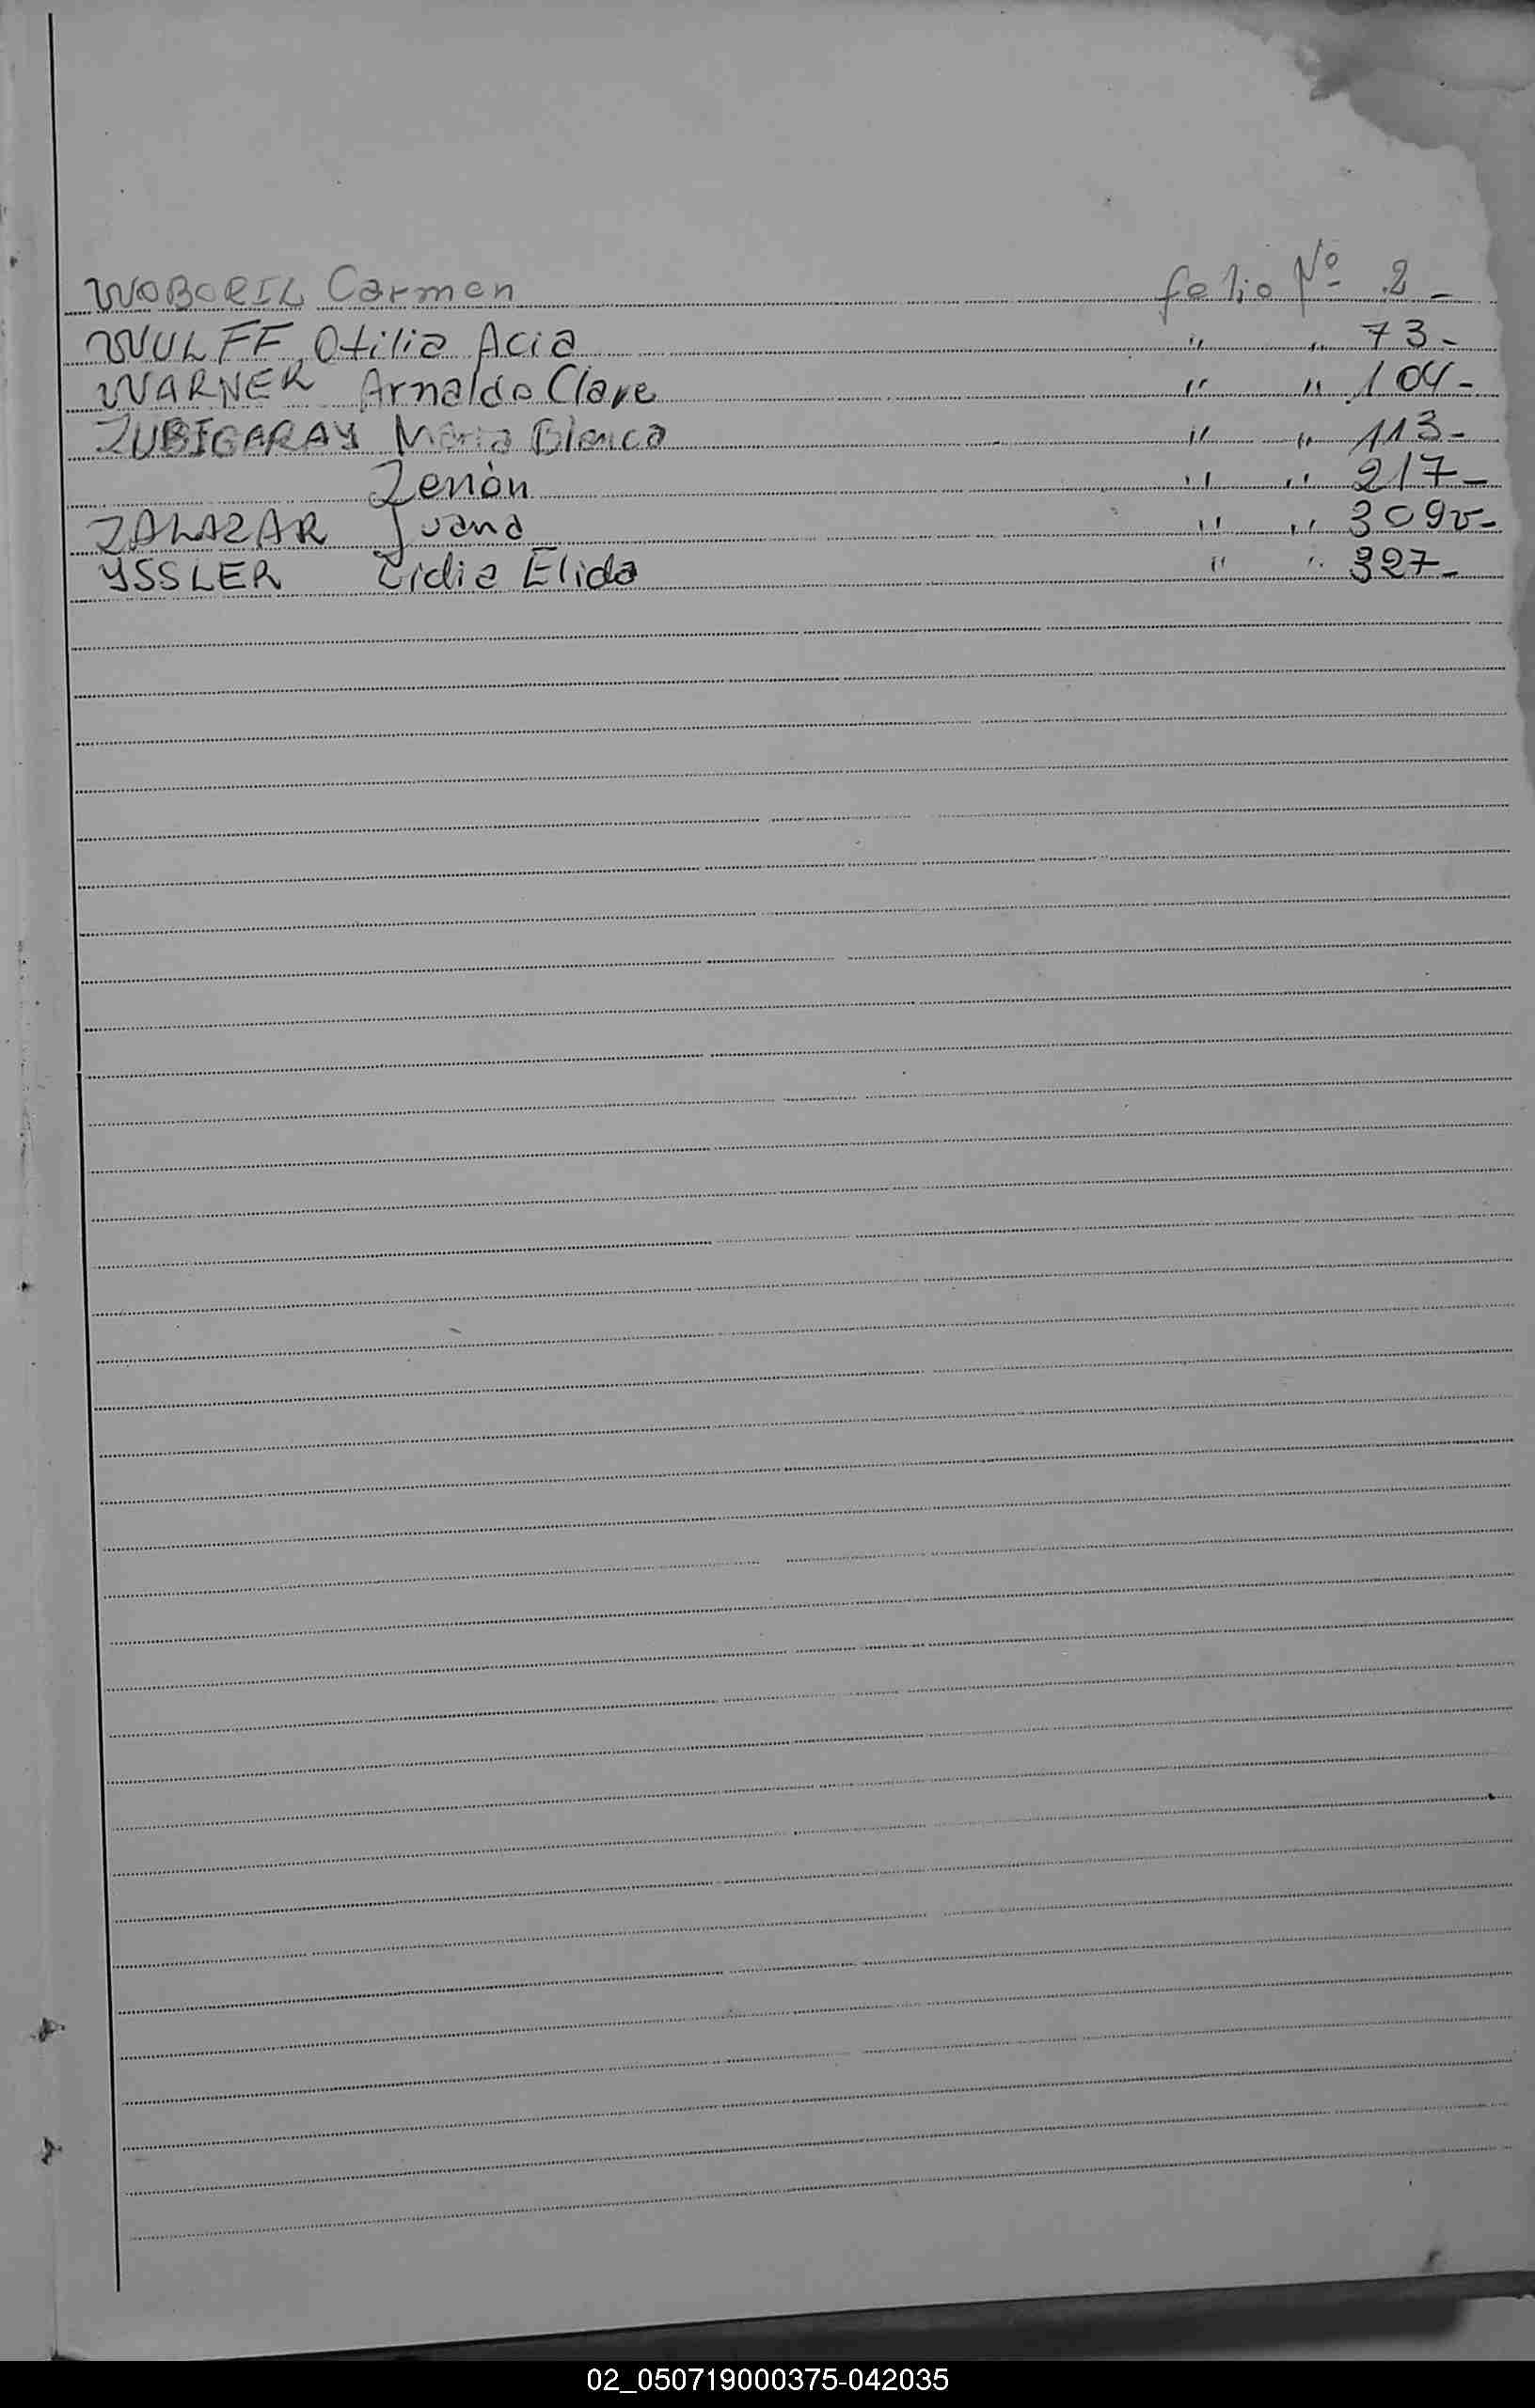 WOBORIL Carmen folio Nº 2-
WULFF Otilia Acia " " 73-
WARNER Arnaldo Clare " " 104-
ZUBIGARAY María Blanca " " 113-
Zenón " " 217-
ZALAZAR Juana " " 309v-
YSSLER Lidia Elida " " 327-
02_050719000375-042035